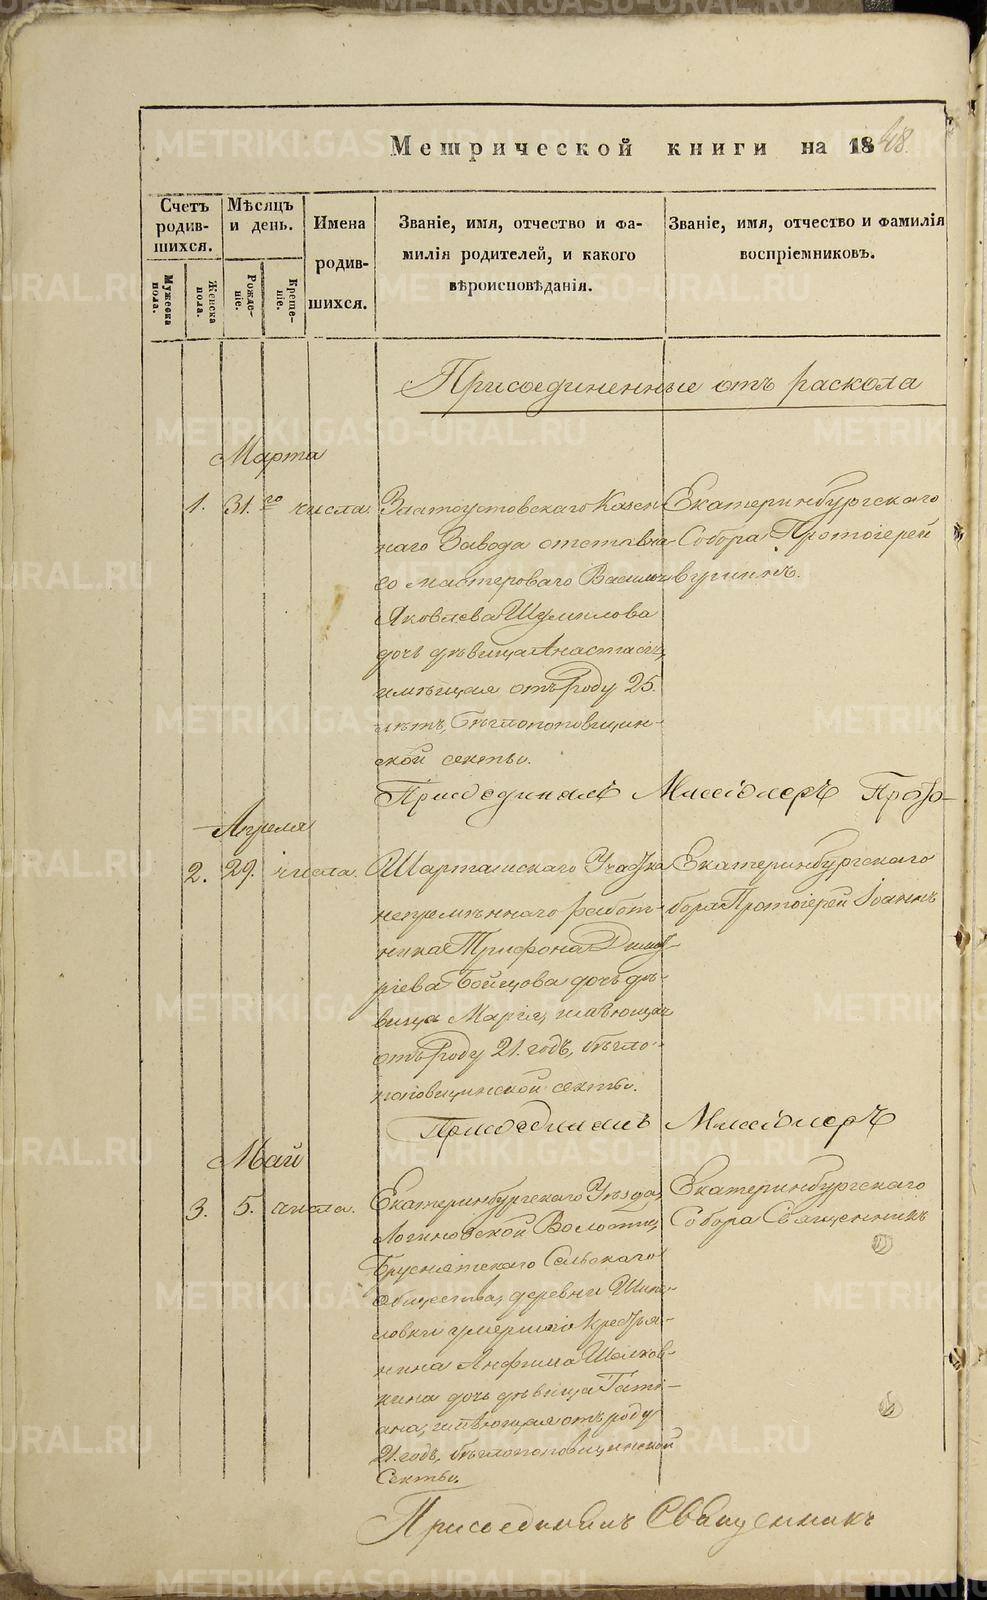 Метрической книги на 1848.
Счетъ родив-шихся.
Мѣсяцъ и день.
Имена родив-шихся.
Званіе, имя, отчество и фа-милія родителей, и какого вѣроисповѣданія.
Званіе, имя, отчество и фамилія воспріемниковъ.
Мужеска пола.
Женска пола.
Рожде-ніе.
Креще-ніе.
Присоединенные отъ раскола
Марта
1. 31.го числа.
Златоустовскаго Казен
наго Завода отставна
го мастероваго Василья
Яковлева Шумилова
дочь дѣвица Анастасія,
имѣющая отъ роду 25.
лѣтъ, бѣглопоповщин-
ской секты.
Екатеринбургскаго
Собора Протоіерей
Присоединилъ Миссіонеръ Прото-
Апреля
2. 29. числа.
Шарташскаго Участка
непремѣннаго работ-
ника Трифона Дмит-
ріева Бойцова дочь дѣ-
вица Марія, имѣющая
отъ роду 21. годъ, бѣгло-
поповщинской секты.
Екатеринбургскаго
бора Протоіерей Іоаннъ
Присоединилъ Миссіонеръ
Май
3. 5. числа.
Екатеринбургскаго Уѣзда,
Логиновской Волости,
Бруснятскаго Сельскаго
Общества, деревни
умершаго Крестья-
нина Анфима
кина дочь дѣвица Тати-
ана, имѣющая отъ роду
21. годъ, бѣглопоповщинской
Секты.
Екатеринбургскаго
Собора Священникъ
Присоединилъ Священникъ
METRIKI.GASO-URAL.RU